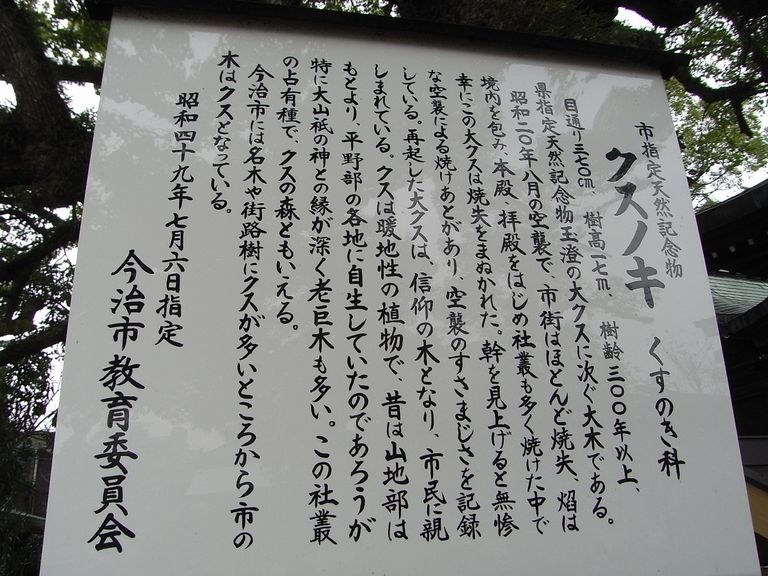 市指定天然記念物
クスノキ くすのき科
目通り三七〇cm、樹高一七m、樹齢三〇〇年以上、
県指定天然記念物玉澄の大クスに次ぐ大木である。
昭和二〇年八月の空襲で、市街はほとんど焼失、焰は
境内を包み、本殿、拝殿をはじめ社叢も多く焼けた中で
幸にこの大クスは焼失をまぬかれた。幹を見上げると無惨
な空襲による焼けあとがあり、空襲のすさまじさを記録
している。再起した大クスは、信仰の木となり、市民に親
しまれている。クスは暖地性の植物で、昔は山地部は
もとより、平野部の各地に自生していたのであろうが
特に大山祇の神との縁が深く老巨木も多い。この社叢
の占有種で、クスの森ともいえる。
今治市には名木や街路樹にクスが多いところから市の
木はクスとなっている。
昭和四十九年七月六日指定
今治市教育委員会